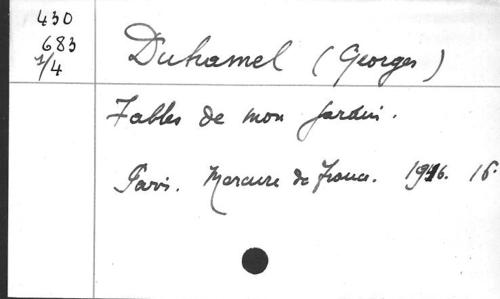 430
683
1/4
Duhamel (Georges)
Fables de mon jardin.
Paris. Mercure de France. 1946. 16.